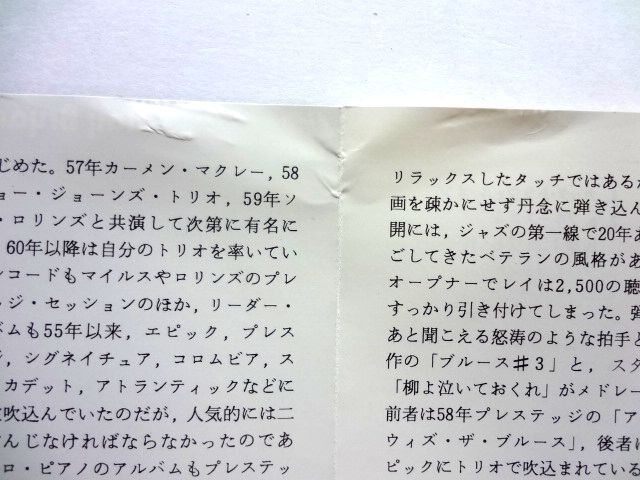 じめた。57年カーメン・マクレー，58
ョー・ジョーンズ・トリオ，59年ソ
・ロリンズと共演して次第に有名に
60年以降は自分のトリオを率いてい
コードもマイルスやロリンズのプレ
ッジ・セッションのほか，リーダー・
バムも55年以来，エピック，プレス
，シグネイチュア，コロムビア，ス
カデット，アトランティックなどに
吹込んでいたのだが，人気的には二
んじなければならなかったのであ
ロ・ピアノのアルバムもプレステッ
リラックスしたタッチではあるが
画を疎かにせず丹念に弾き込ん
開には，ジャズの第一線で20年あ
ごしてきたベテランの風格があ
オープナーでレイは2,500の聴
すっかり引き付けてしまった。弾
あと聞こえる怒涛のような拍手と
作の「ブルース♯3」と，スタ
「柳よ泣いておくれ」がメドレー
前者は58年プレステッジの「ア
ウィズ・ザ・ブルース」，後者は
ピックにトリオで吹込まれている